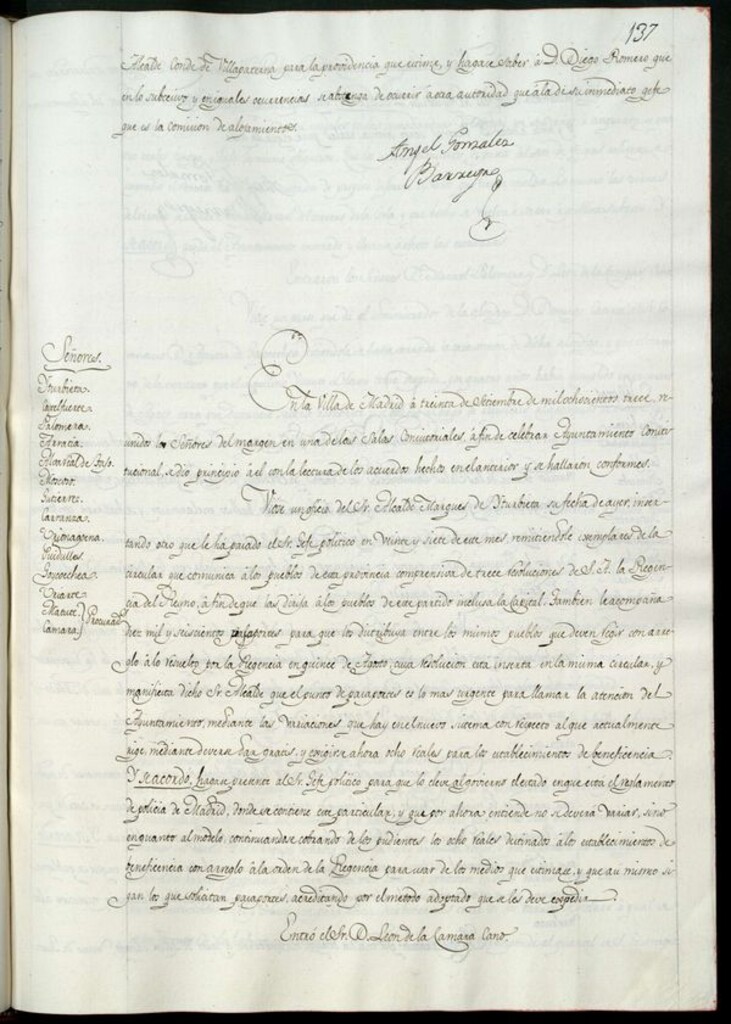 137
Alcalde Conde de Villapaterna para la providencia que estime, y hagase saber à D. Diego Romero que
en lo subcesivo y en iguales ocurrencias se abtenga de ocurrir à otra autoridad que à la de su inmediato gefe
que es la comision de alojamientos.
Angel Gonzalez
Barreyro
En la Villa de Madrid à treinta de Setiembre de mil ochocientos trece, re-
unidos los Señores del margen en una de las Salas Consistoriales, à fin de celebrar Ayuntamiento Consti-
tucional, se dio principio à el con la lectura de los acuerdos hechos en el anterior y se hallaron conformes.
Señores.
Yturbieta.
Castelfuerte.
Palomera.
Arratia.
Alvareal de
Gutierrez.
Carranza.
Goycoechea.
Uriarte.
Matute.
Camara.
Procurad
Viose un oficio del Sr. Alcalde Marques de Yturbieta su fecha de ayer, inser-
tando otro que le ha pasado el Sr. Gefe politico en veinte y siete de este mes, remitiendole exemplares de la
circular que comunica à los pueblos de esta provincia comprensiva de trece resoluciones de S. A. la Regen-
cia del Reyno, à fin de que las dirija à los pueblos de este partido inclusa la Capital. Tambien le acompaña
diez mil y seiscientos pasaportes para que los distribuya entre los mismos pueblos que deven regir con arre-
glo à lo resuelto por la Regencia en quince de Agosto, cuya resolucion esta inserta en la misma circular, y
manifiesta dicho Sr. Alcalde que el punto de pasaportes es lo mas urgente para llamar la atencion del
Ayuntamiento, mediante las variaciones que hay en el nuevo sistema con respecto al que actualmente
rige, mediante deverse dar gratis, y exigirse ahora ocho reales para los establecimientos de beneficencia.
Y se acordo, hagase presente al Sr. Gefe politico para que lo eleve al govierno el estado en que está el reglamento
de policia de Madrid, donde se contiene este particular, y que por ahora entiende no se deverá variar, sino
en quanto al modelo, continuandose cobrando de los pudientes los ocho reales destinados à los establecimientos de
beneficencia con arreglo à la orden de la Regencia para usar de los medios que estimase, y que asi mismo si-
gan los que solicitan pasaportes, acreditando por el metodo adoptado que se les deve expedir.
Entró el Sr. D. Leon de la Camara Cano.